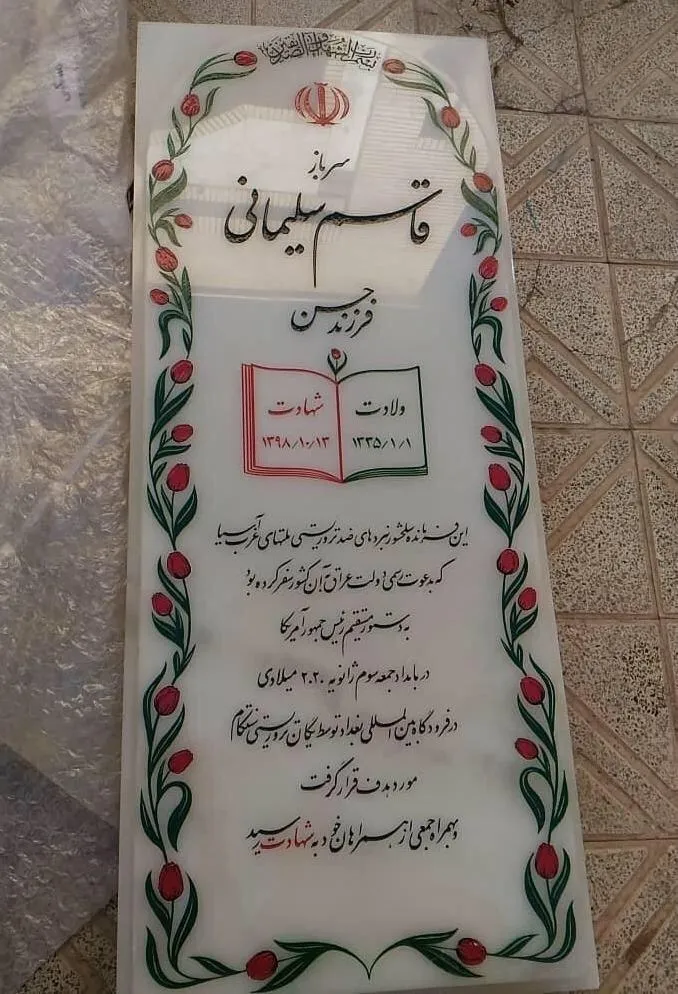 بسم رب الشهداء و الصدیقین
سرباز
قاسم سلیمانی
فرزند حسن
ولادت
۱۳۳۵/۱/۱
شهادت
۱۳۹۸/۱۰/۱۳
این فرمانده سلحشور نبردهای ضد تروریستی ملتهای غرب آسیا
که بدعوت رسمی دولت عراق به آن کشور سفر کرده بود
به دستور مستقیم رئیس جمهور آمریکا
در بامداد جمعه سوم ژانویه ۲۰۲۰ میلادی
در فرودگاه بین المللی بغداد توسط یگان تروریستی سنتکام
مورد هدف قرار گرفت
و بهمراه جمعی از همسرا هان خود به شهادت رسید